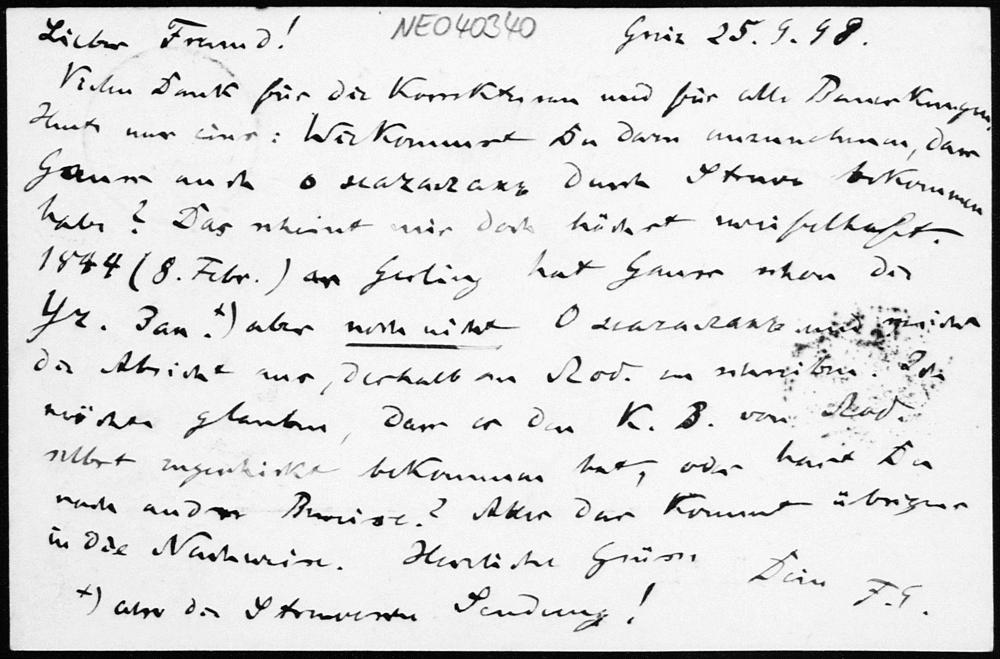 Lieber Freund! NEO40340 Greiz 25.9.98.
Vielen Dank für die Korrekturen und für alle Bemerkungen.
Heute nur eins: Wie kommst Du dazu anzunehmen, dass
Gauss auch О началахъ durch Struve bekommen
habe? Das scheint mir doch höchst zweifelhaft.
1844 (8. Febr.) an Gerling hat Gauss schon die
Уч. Зап. +) aber noch nicht О началахъ und spricht
die Absicht aus, deshalb an Lob. zu schreiben. Ich
möchte glauben, dass er den K. B. von Lob.
selbst zugeschickt bekommen hat, oder hast Du
noch andre Beweise? Aber das kommt übrigens
in die Nachweise. Herzliche Grüsse
Dein F.E.
+) also die Struvesche Sendung!